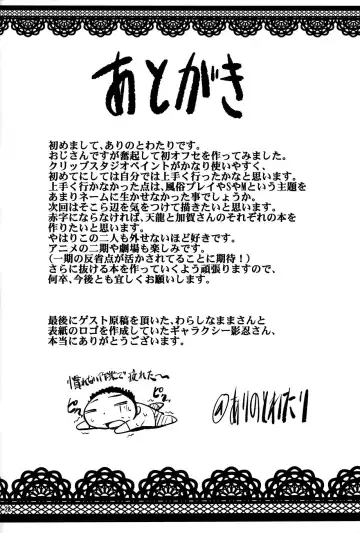 あとがき
初めまして、ありのとわたりです。
おじさんですが奮起して初オフセを作ってみました。
クリップスタジオペイントがかなり使いやすく、
初めてにしては自分では上手く行ったかなと思います。
上手く行かなかった点は、風俗プレイやSやMという主題を
あまりネームに生かせなかった事でしょうか。
次回はそこら辺を気をつけて描きたいと思います。
赤字にならなければ、天龍と加賀さんのそれぞれの本を
作りたいと思います。
やはりこの二人も外せないほど好きです。
アニメの二期や劇場も楽しみです。
(一期の反省点が活かされてることに期待!)
さらに抜ける本を作っていくよう頑張りますので、
何卒、今後とも宜しくお願いします。
最後にゲスト原稿を頂いた、わらしなままさんと
表紙のロゴを作成していたギャラクシー影忍さん、
本当にありがとうございます。
慣れない作業で疲れた〜
ピク
ピク
@ありのとわたり